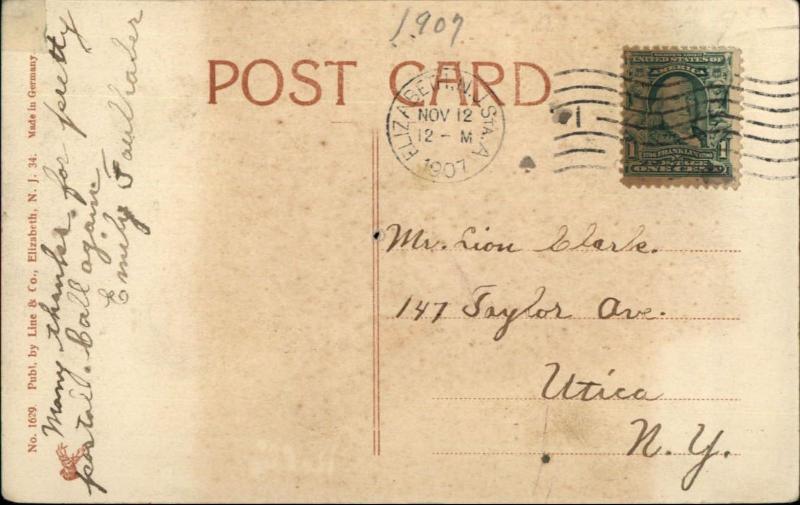 1907
POST CARD
ELIZABETH, N.J. STA. A
NOV 12
12 - M
1907
1
UNITED STATES OF
AMERICA
1
FRANKLIN
POSTAGE
ONE CENT
Mr. Lion Clark.
147 Taylor Ave.
Utica
N. Y.
Many thanks for pretty
postal. Call again
Emily Faulhaber
No. 1629. Publ. by Line & Co., Elizabeth, N. J. 34. Made in Germany